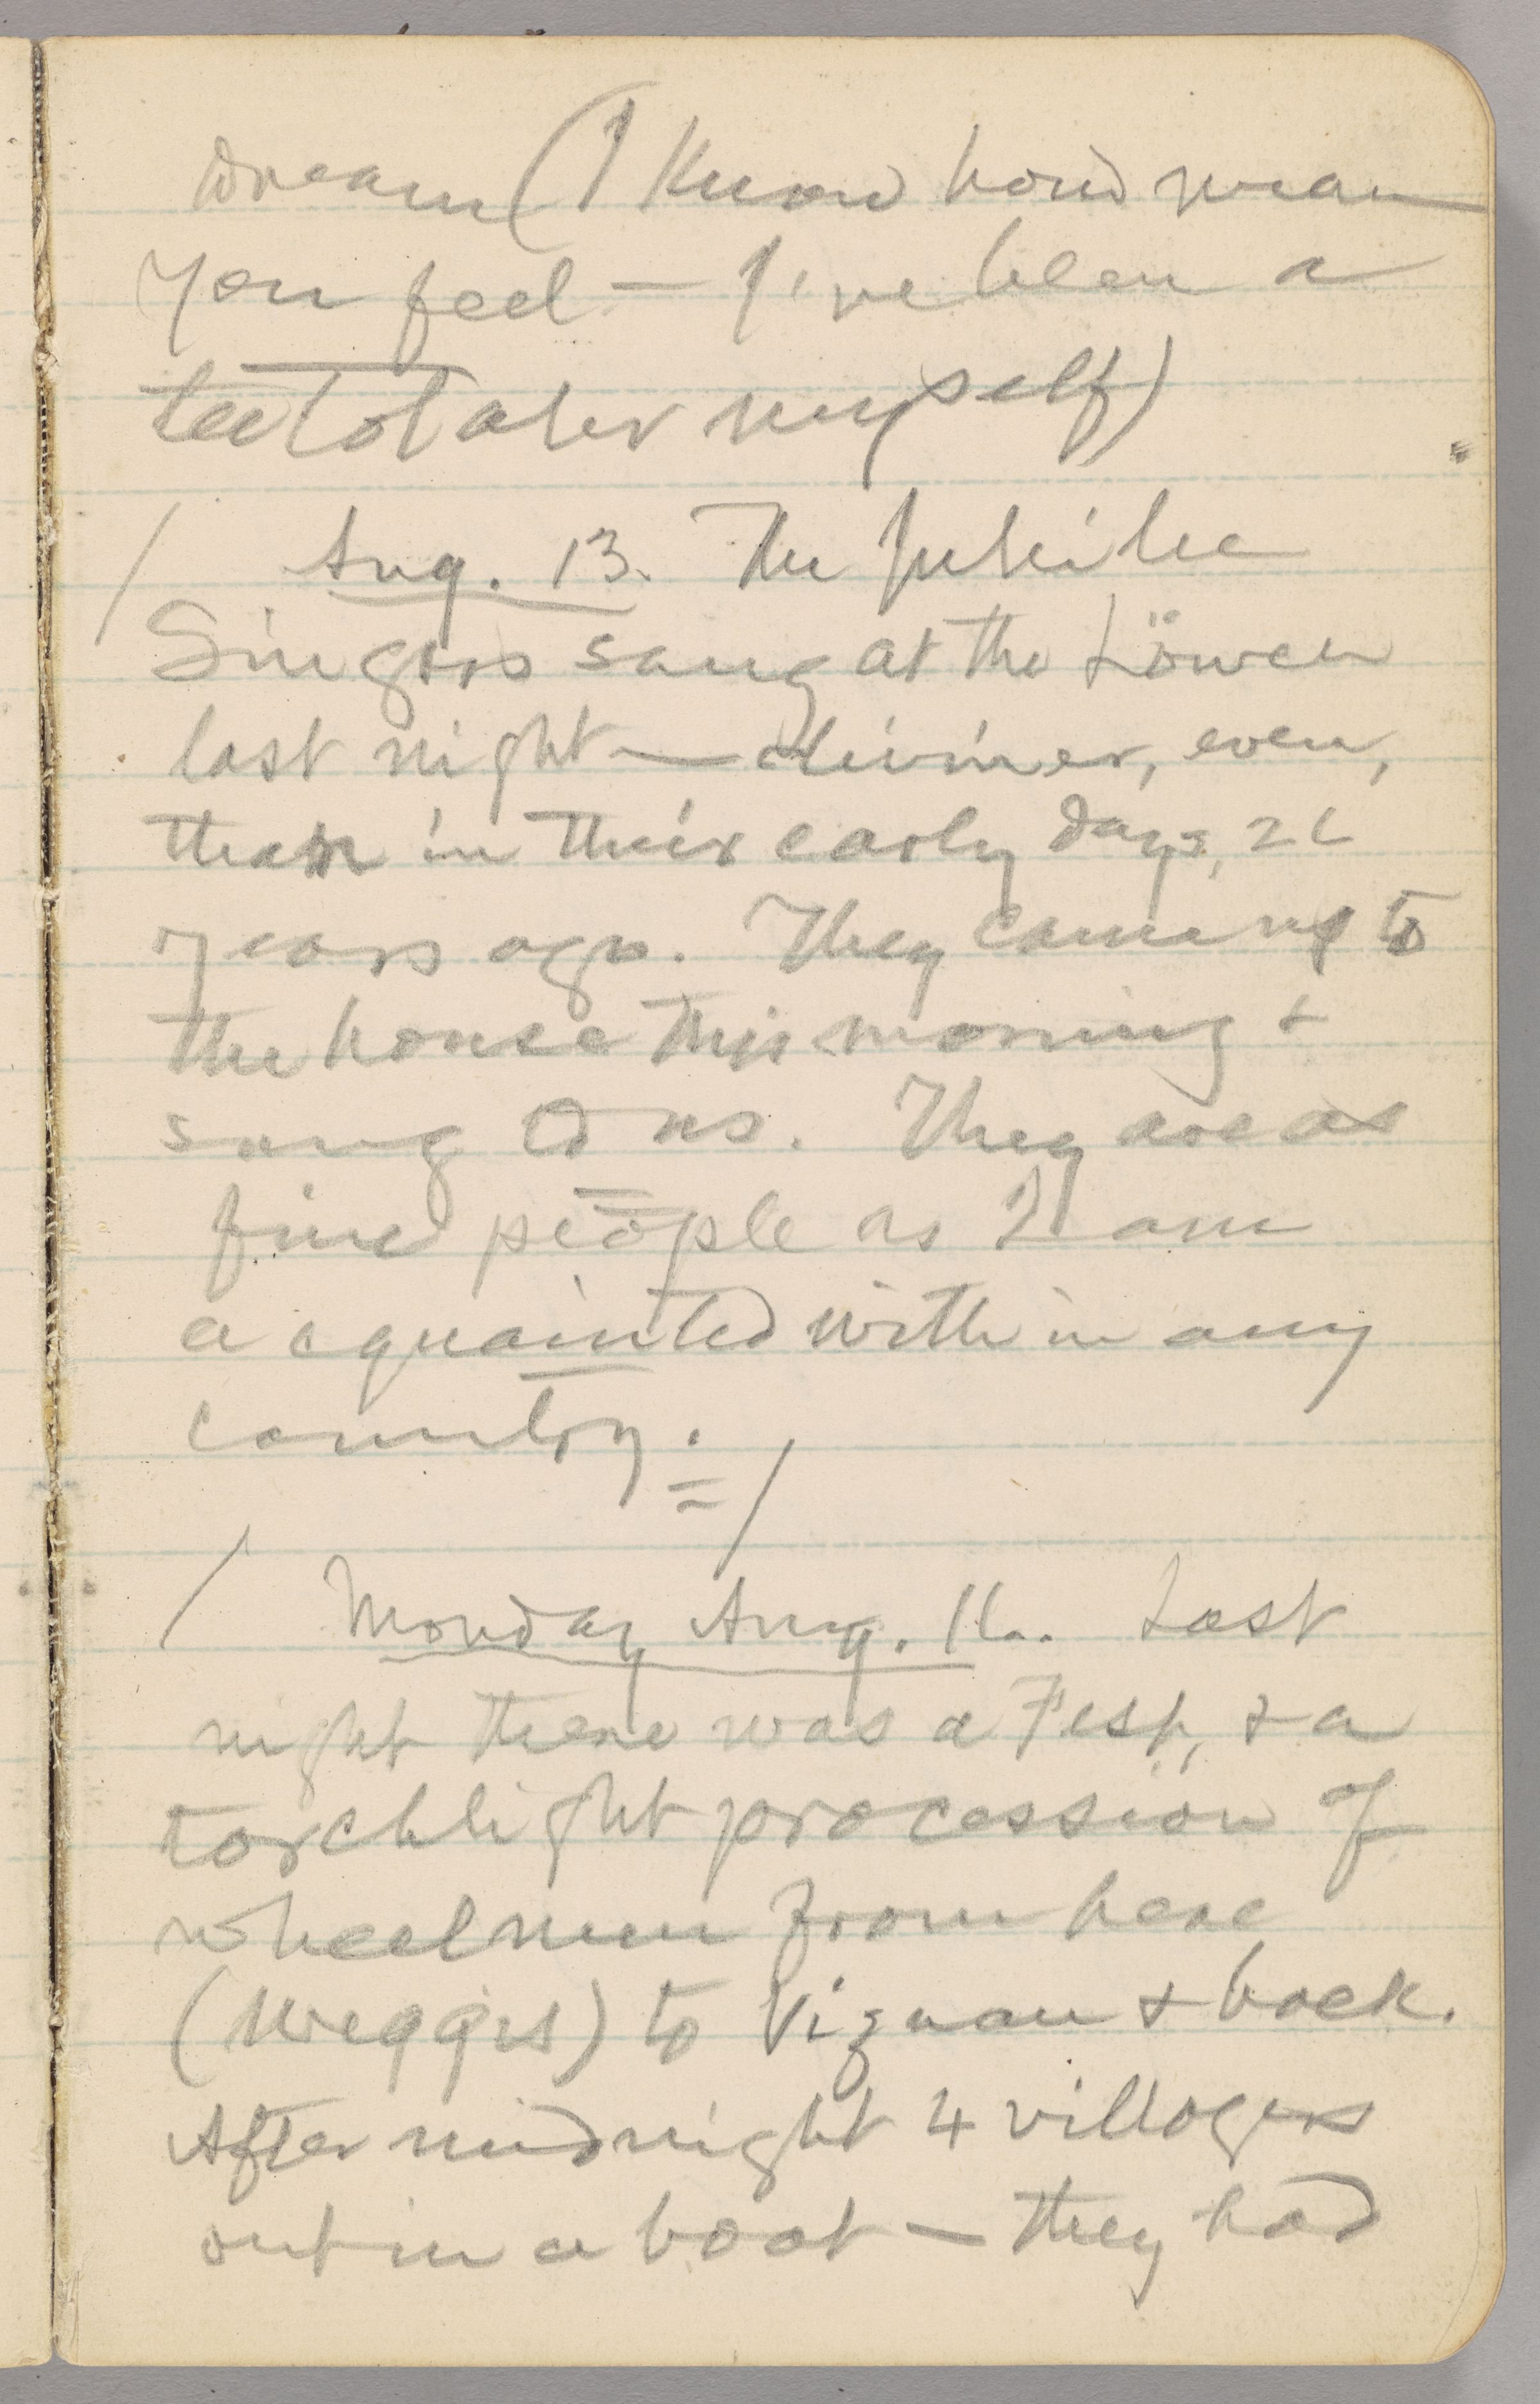 dream (I know how mean
you feel — I've been a
teetotaler myself)
/ Aug. 13. The Jubilee
Singers sang at the Löwen
last night — diviner, even,
than in their early days, 26
years ago. They came up to
the house this morning &
sang to us. They are as
fine people as I am
acquainted with in any
country. = /
/ Monday Aug. 16. Last
night there was a Fest, & a
torchlight procession of
wheelmen from here
(Weggis) to Viznau & back.
After midnight 4 villagers
out in a boat — they had